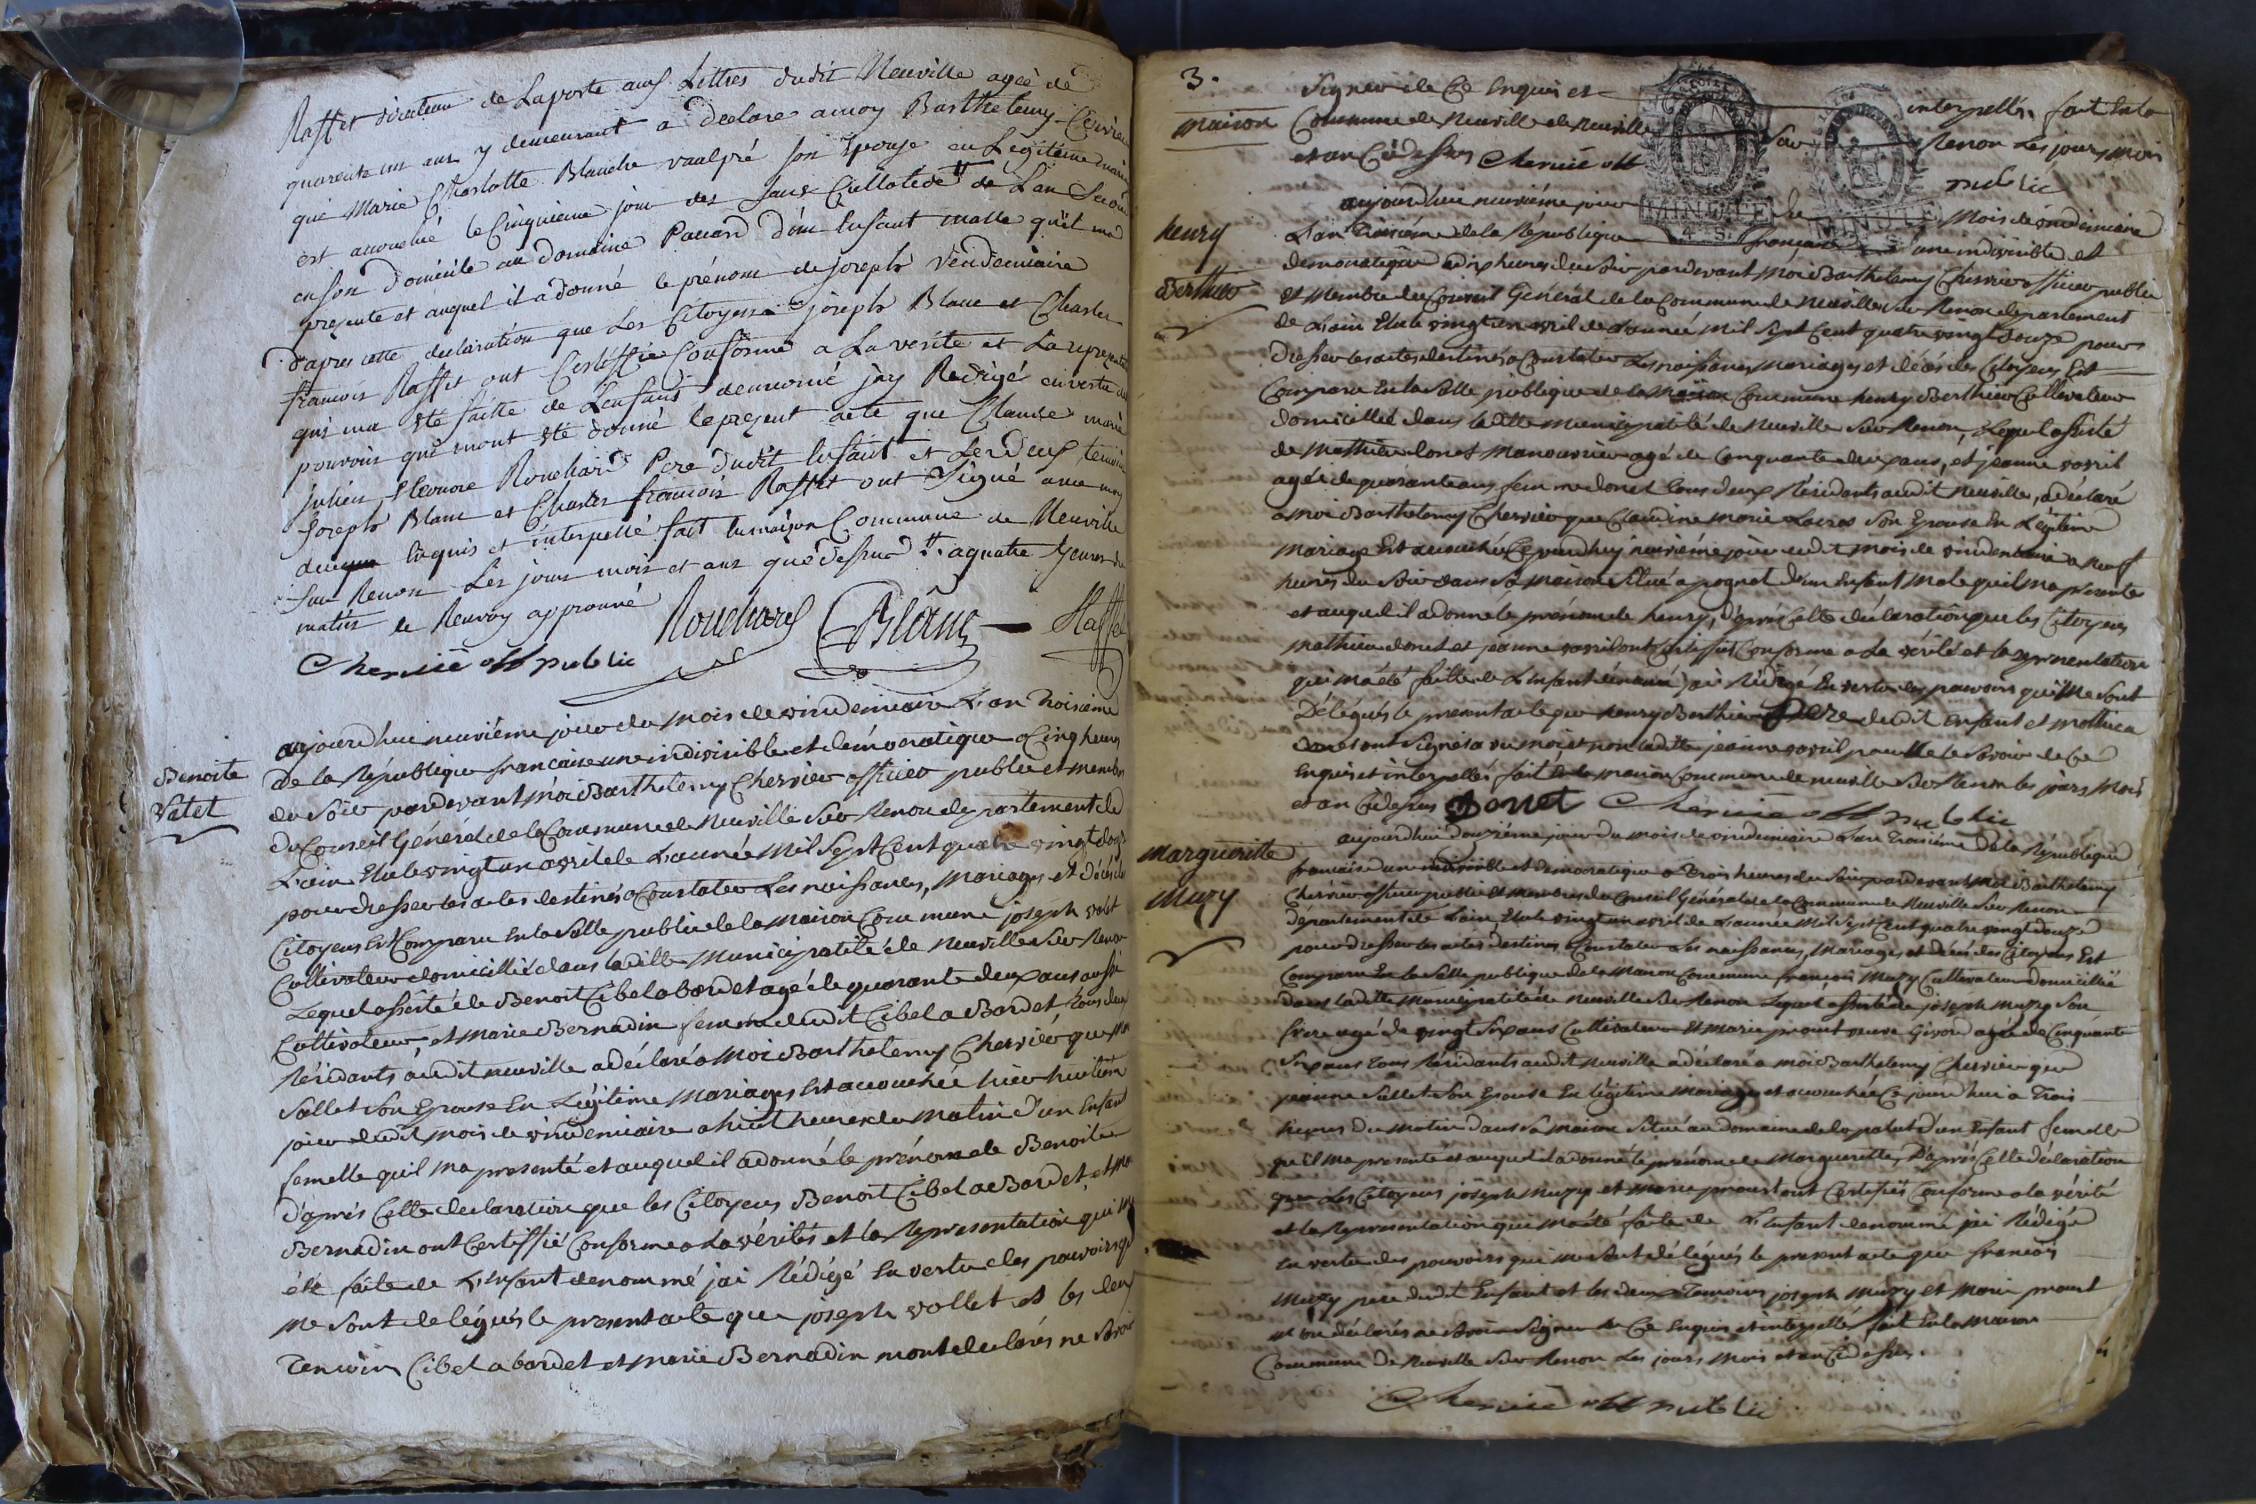 Raffet directeur de Laposte aux Lettres dudit Neuville ageé de
quarente un ans y demeurant a declare amoy Barthelemy
que Marie Charlotte Blanche vaalpré son Epouse en Legitime
est accouché le Cinquieme jour des sans Cullotide de L'an
en son domicile au domaine Pacard d'un Enfant malle qu'il ma
présenté et auquel il a donné le prénom de joseph Vendemiaire
d'apres cette declaration que Les Citoyens joseph Blanc et Charles
francois Raffet ont Certiffié Conforme a La verité et La
qui ma été faitte de L'enfant denommé jay Redigé en vertu
pouvoirs qui mont été donné le present acte que Claude marie
julien Eleonore Rouchard Pere dudit Enfant et Les deux
joseph Blanc et Charles francois Raffet ont Signé avec moy
Enquis et interpellé fait En maison Commune de Neuville
Sur Renon Les jour mois et ans que dessus a quatre heures du
matin le Renvoy approuvé
Rouchard Blanc Raffet
Chervié off public
Benoite
Valet
aujourdhui neuvième jour du mois de vindemiaire L'an Troisième
de la République francaise une indivisible et démocratique a Cinq heures
du Soir pardevant moi Barthelemy Chervier officier public et membre
du Conseil Général de la Commune de Neuville Sur Renon département de
L'ain Elu le vingt un avril de L'année mil Sept Cent quatre vingt douze
pour dresser les actes destinés a Constater Les naissances, Mariages et décès des
Citoyens Est Comparu En la Salle public de la Maison Commune joseph
Cultivateur domicillié dans laditte Municipalité de Neuville Sur Renon
Lequel assisté de Benoit Cibel a bordet agé de quarante deux ans aussi
Cultivateur, et Marie Bernadin femme dudit Cibel a Bordet Tous deux
Résidants audit neuville a déclaré a Moi Barthelemy Chervier que
Sallet Son Epouse En Légitime Mariage Est accouchée hier huitième
jour dudit mois de vindemiaire a huit heures du Matin d'un Enfant
femelle qu'il ma presenté et auquel il a donné le prénom de Benoite
d'après Cette declaration que les Citoyens Benoit Cibel a Bordet, et
Bernadin ont Certiffié Conforme a La vérité et la Representation qui
été faite de L'Enfant denommé j'ai Rédigé En vertu des pouvoirs
me Sont delegués le present acte que joseph vallet et les deux
Temoins Cibel a bordet et marie Bernadin mont declarés ne
3.
Signer de Ce Enquis et interpellés. fait En la
maison Commune de Neuville de Neuville Sur Renon Les jours, mois
et an Ci dessus Cherviè off public
henry
Berthier
aujourdhui neuvième jour du Mois de vindemiaire
L'an Troisième de la République francaise une indivisible et
démocratique a dix heures du Soir pardevant Moi Barthelemy Chervier officier public
Et Membre du Conseil Général de la Commune de Neuville Sur Renon departement
de L'ain Elu le vingt un avril de L'année Mil Sept Cent quatre vingt douze pour
Dresser les actes destinés a Constater Les naissances Mariages et décès des Citoyens Est
Comparu En la Salle publique de la Maison Commune henry Berthier Cultivateur
domicillié dans laditte Municipalité de Neuville Sur Renon, Lequel assisté
de Mathieu donet Manouvrier agé de Cinquante deux ans, et jeanne
agée de quarante ans, femme donet Tous deux Résidants audit neuville, a déclaré
a moi Barthelemy Chervier que Claudine Marie Son Epouse En Légitime
Mariage Est accouchée Ce jourdhuy neuvième jour dudit Mois de vindemiaire a neuf
heures du Soir dans Sa Maison Situé a d'un Enfant Male qu'il ma presenté
et auquel il a donné le prénom de henry, d'après Cette déclaration que les Citoyens
Mathieu donet et jeanne ont Certiffiés Conforme a La vérité et la representation
qui m'a été faitte de L'infant dénommé j'ai Rédigé En vertu des pouvoirs qui Me Sont
Délégués le present acte que henry Berthier Pere dudit Enfant et
donet ont Signés moi et non laditte jeanne pour ne le Savoir de Ce
Enquis et interpellés fait En la maison Commune de neuville Sur Renon les jours Mois
et an Ci dessus Donet Cherviè off public
Margueritte
Muzy
aujourdhui Douzième jour du mois de vindemiaire L'an Troisième De la République
francaise une indivisible et Democratique a Trois heures du Soir pardevant Moi Barthelemy
Chervier officier public et membre du Conseil Général de la Commune de Neuville Sur Renon
departement de L'ain Elu le vingt un avril de L'année Mil Sept Cent quatre vingt Douze
pour dresser les actes destinés a Constater Les naissances, Mariages et décès des Citoyens Est
Comparu En la Salle publique de la Maison Commune francois Muzy Cultivateur domicillié
Dans laditte Municipalité de Neuville Sur Renon Lequel assisté de joseph Muzy Son
frère agé de vingt Six ans Cultivateur et Marie veuve agée de Cinquante
Six ans Tous Résidants audit Neuville a déclaré a moi Barthelemy Chervier que
jeanne Sallet Son Epouse En légitime Mariage et accouchée Ce jourdhui a Trois
heures Du Matin dans Sa Maison Situé au domaine de la d'un Enfant femelle
qu'il ma presenté et auquel il a donné le prénom de Marguerette, D'après Cette déclaration
que Les Citoyens joseph Muzy et Marie ont Certifiés Conforme a la vérité
et la Representation qui m'a été faite de L'Enfant denommé j'ai Rédigé
En vertu des pouvoirs qui me Sont délégués le present acte que francois
Muzy pere dudit Enfant et les deux Temoins joseph Muzy et Marie
m'ont déclarés ne Savoir Signer de Ce Enquis et interpellés fait En la Maison
Commune De Neuville Sur Renon Les jours Mois et an Ci dessus.
Cherviè off public